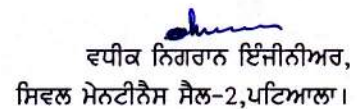 ਵਧੀਕ ਨਿਗਰਾਨ ਇੰਜੀਨੀਅਰ,
ਸਿਵਲ ਮੇਨਟੀਨੈਸ ਸੈਲ-2,ਪਟਿਆਲਾ।